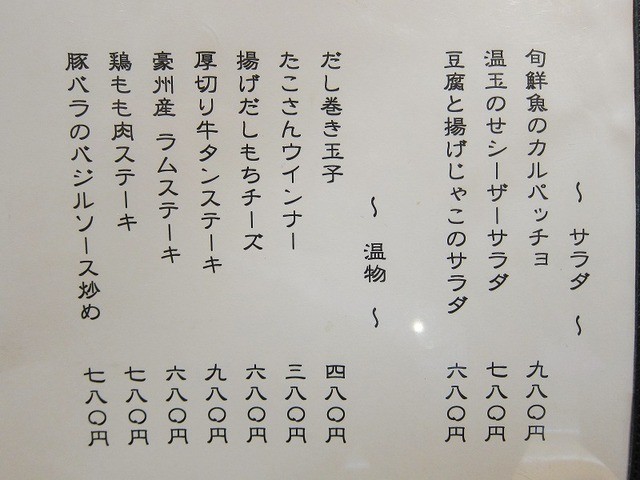 ～ サラダ ～
旬鮮魚のカルパッチョ 九八〇円
温玉のせシーザーサラダ 七八〇円
豆腐と揚げじゃこのサラダ 六八〇円
～ 温物 ～
だし巻き玉子 四八〇円
たこさんウインナー 三八〇円
揚げだしもちチーズ 六八〇円
厚切り牛タンステーキ 九八〇円
豪州産 ラムステーキ 六八〇円
鶏もも肉ステーキ 七八〇円
豚バラのバジルソース炒め 七八〇円